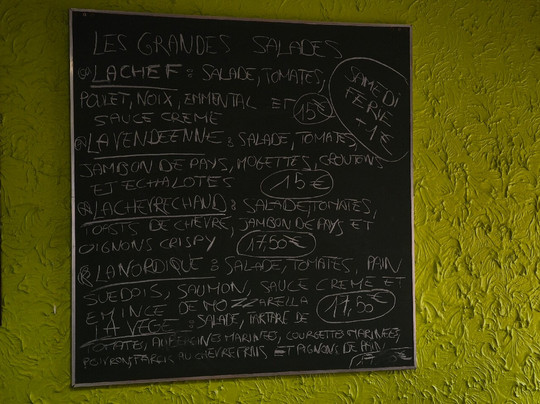 LES GRANDES SALADES
LA CHEF : SALADE, TOMATES,
POULET, NOIX, EMMENTAL ET
SAUCE CREME
15€
SAMEDI
FERIE
-1€
LA VENDEENNE : SALADE, TOMATES,
JAMBON DE PAYS, MOGETTES, CROUTONS
ET ECHALOTES
15€
LA CHEVRECHAUD : SALADE, TOMATES,
TOASTS DE CHEVRE, JAMBON DE PAYS ET
OIGNONS CRISPY
17,50€
LA NORDIQUE : SALADE, TOMATES, PAIN
SUEDOIS, SAUMON, SAUCE CREME ET
EMINCE DE MOZZARELLA
17,50€
LA VEGE : SALADE, TARTARE DE
TOMATE, AUBERGINES MARINEES, COURGETTES MARINEES,
POIVRONS FARCIS AU CHEVRE FRAIS ET PIGNONS DE PAIN